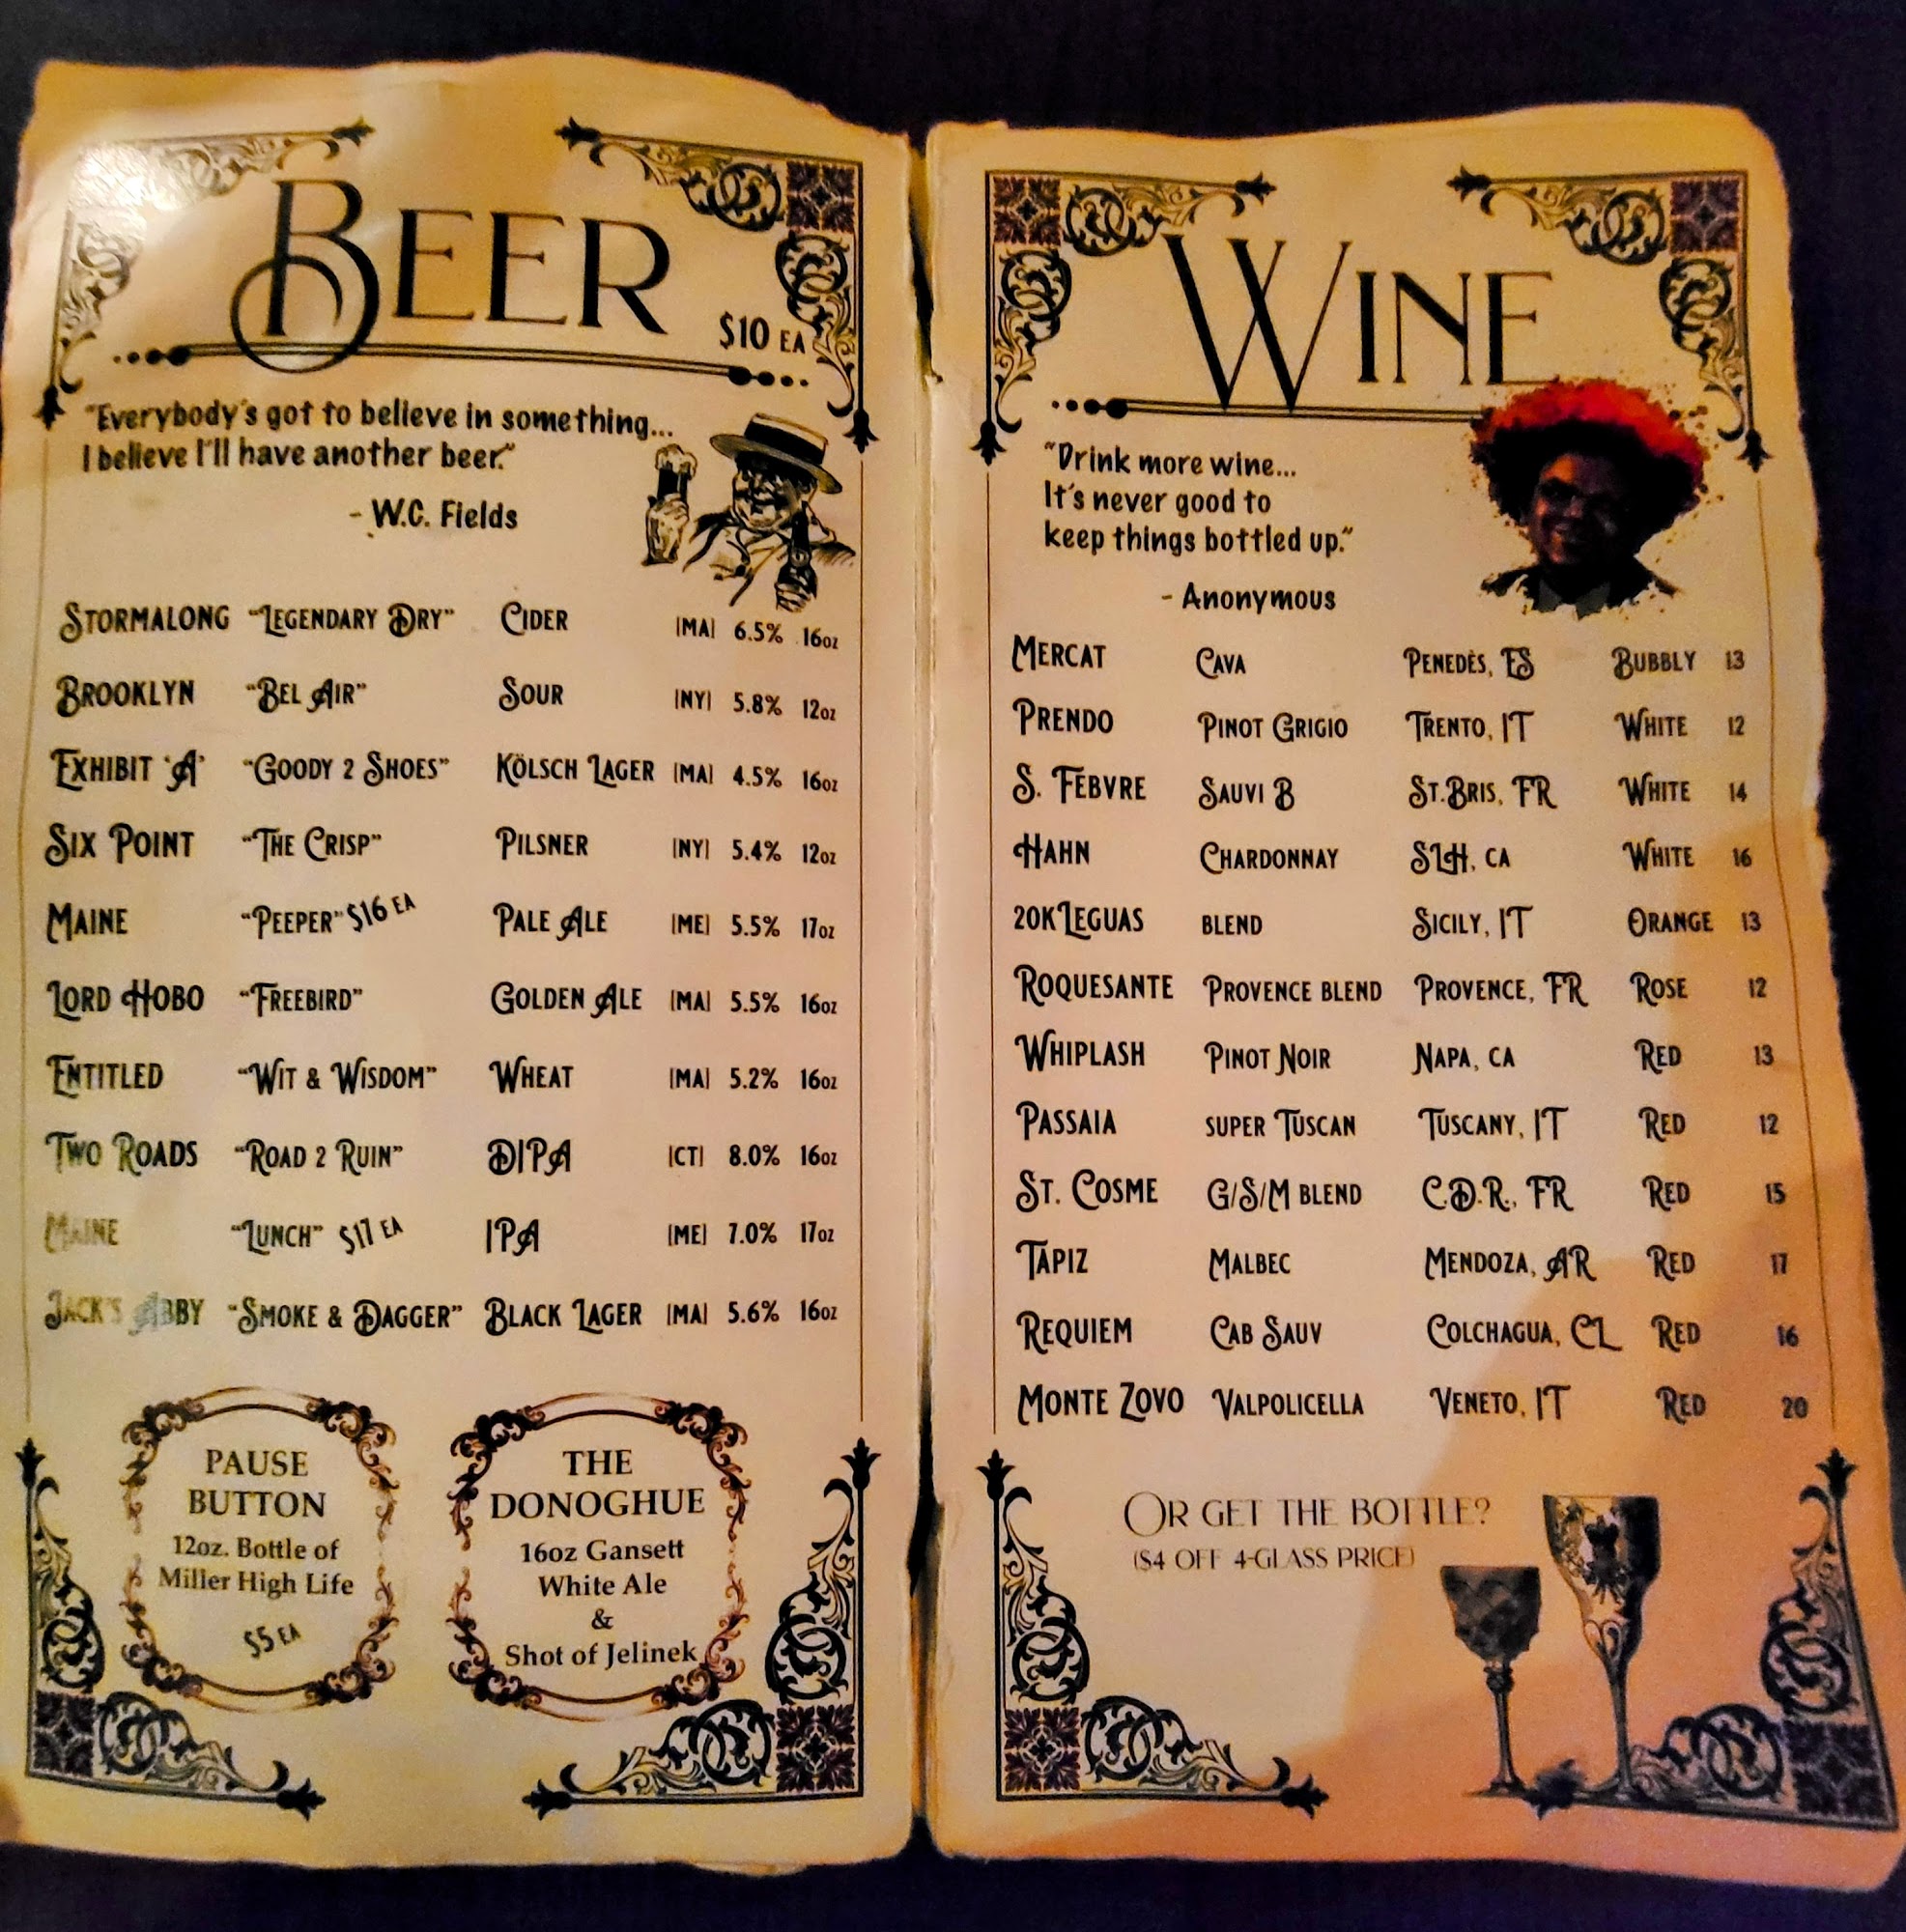 BEER
$10 EA
"Everybody's got to believe in something...
I believe I'll have another beer."
- W.C. Fields
STORMALONG "LEGENDARY DRY" CIDER |MA| 6.5% 16oz
BROOKLYN "BEL AIR" SOUR |NY| 5.8% 12oz
EXHIBIT 'A' "GOODY 2 SHOES" KÖLSCH LAGER |MA| 4.5% 16oz
SIX POINT "THE CRISP" PILSNER |NY| 5.4% 12oz
MAINE "PEEPER" $16 EA PALE ALE |ME| 5.5% 17oz
LORD HOBO "FREEBIRD" GOLDEN ALE |MA| 5.5% 16oz
ENTITLED "WIT & WISDOM" WHEAT |MA| 5.2% 16oz
TWO ROADS "ROAD 2 RUIN" DIPA |CT| 8.0% 16oz
MAINE "LUNCH" $17 EA IPA |ME| 7.0% 17oz
JACK'S ABBY "SMOKE & DAGGER" BLACK LAGER |MA| 5.6% 16oz
PAUSE
BUTTON
12oz. Bottle of
Miller High Life
$5 EA
THE
DONOGHUE
16oz Gansett
White Ale
&
Shot of Jelinek
WINE
"Drink more wine...
It's never good to
keep things bottled up."
- Anonymous
MERCAT CAVA PENEDÈS, ES BUBBLY 13
PRENDO PINOT GRIGIO TRENTO, IT WHITE 12
S. FEBVRE SAUVI B ST.BRIS, FR WHITE 14
HAHN CHARDONNAY SLH, CA WHITE 16
20K LEGUAS BLEND SICILY, IT ORANGE 13
ROQUESANTE PROVENCE BLEND PROVENCE, FR ROSE 12
WHIPLASH PINOT NOIR NAPA, CA RED 13
PASSAIA SUPER TUSCAN TUSCANY, IT RED 12
ST. COSME G/S/M BLEND C.D.R., FR RED 15
TAPIZ MALBEC MENDOZA, AR RED 17
REQUIEM CAB SAUV COLCHAGUA, CL RED 16
MONTE ZOVO VALPOLICELLA VENETO, IT RED 20
OR GET THE BOTTLE?
($4 OFF 4-GLASS PRICE)